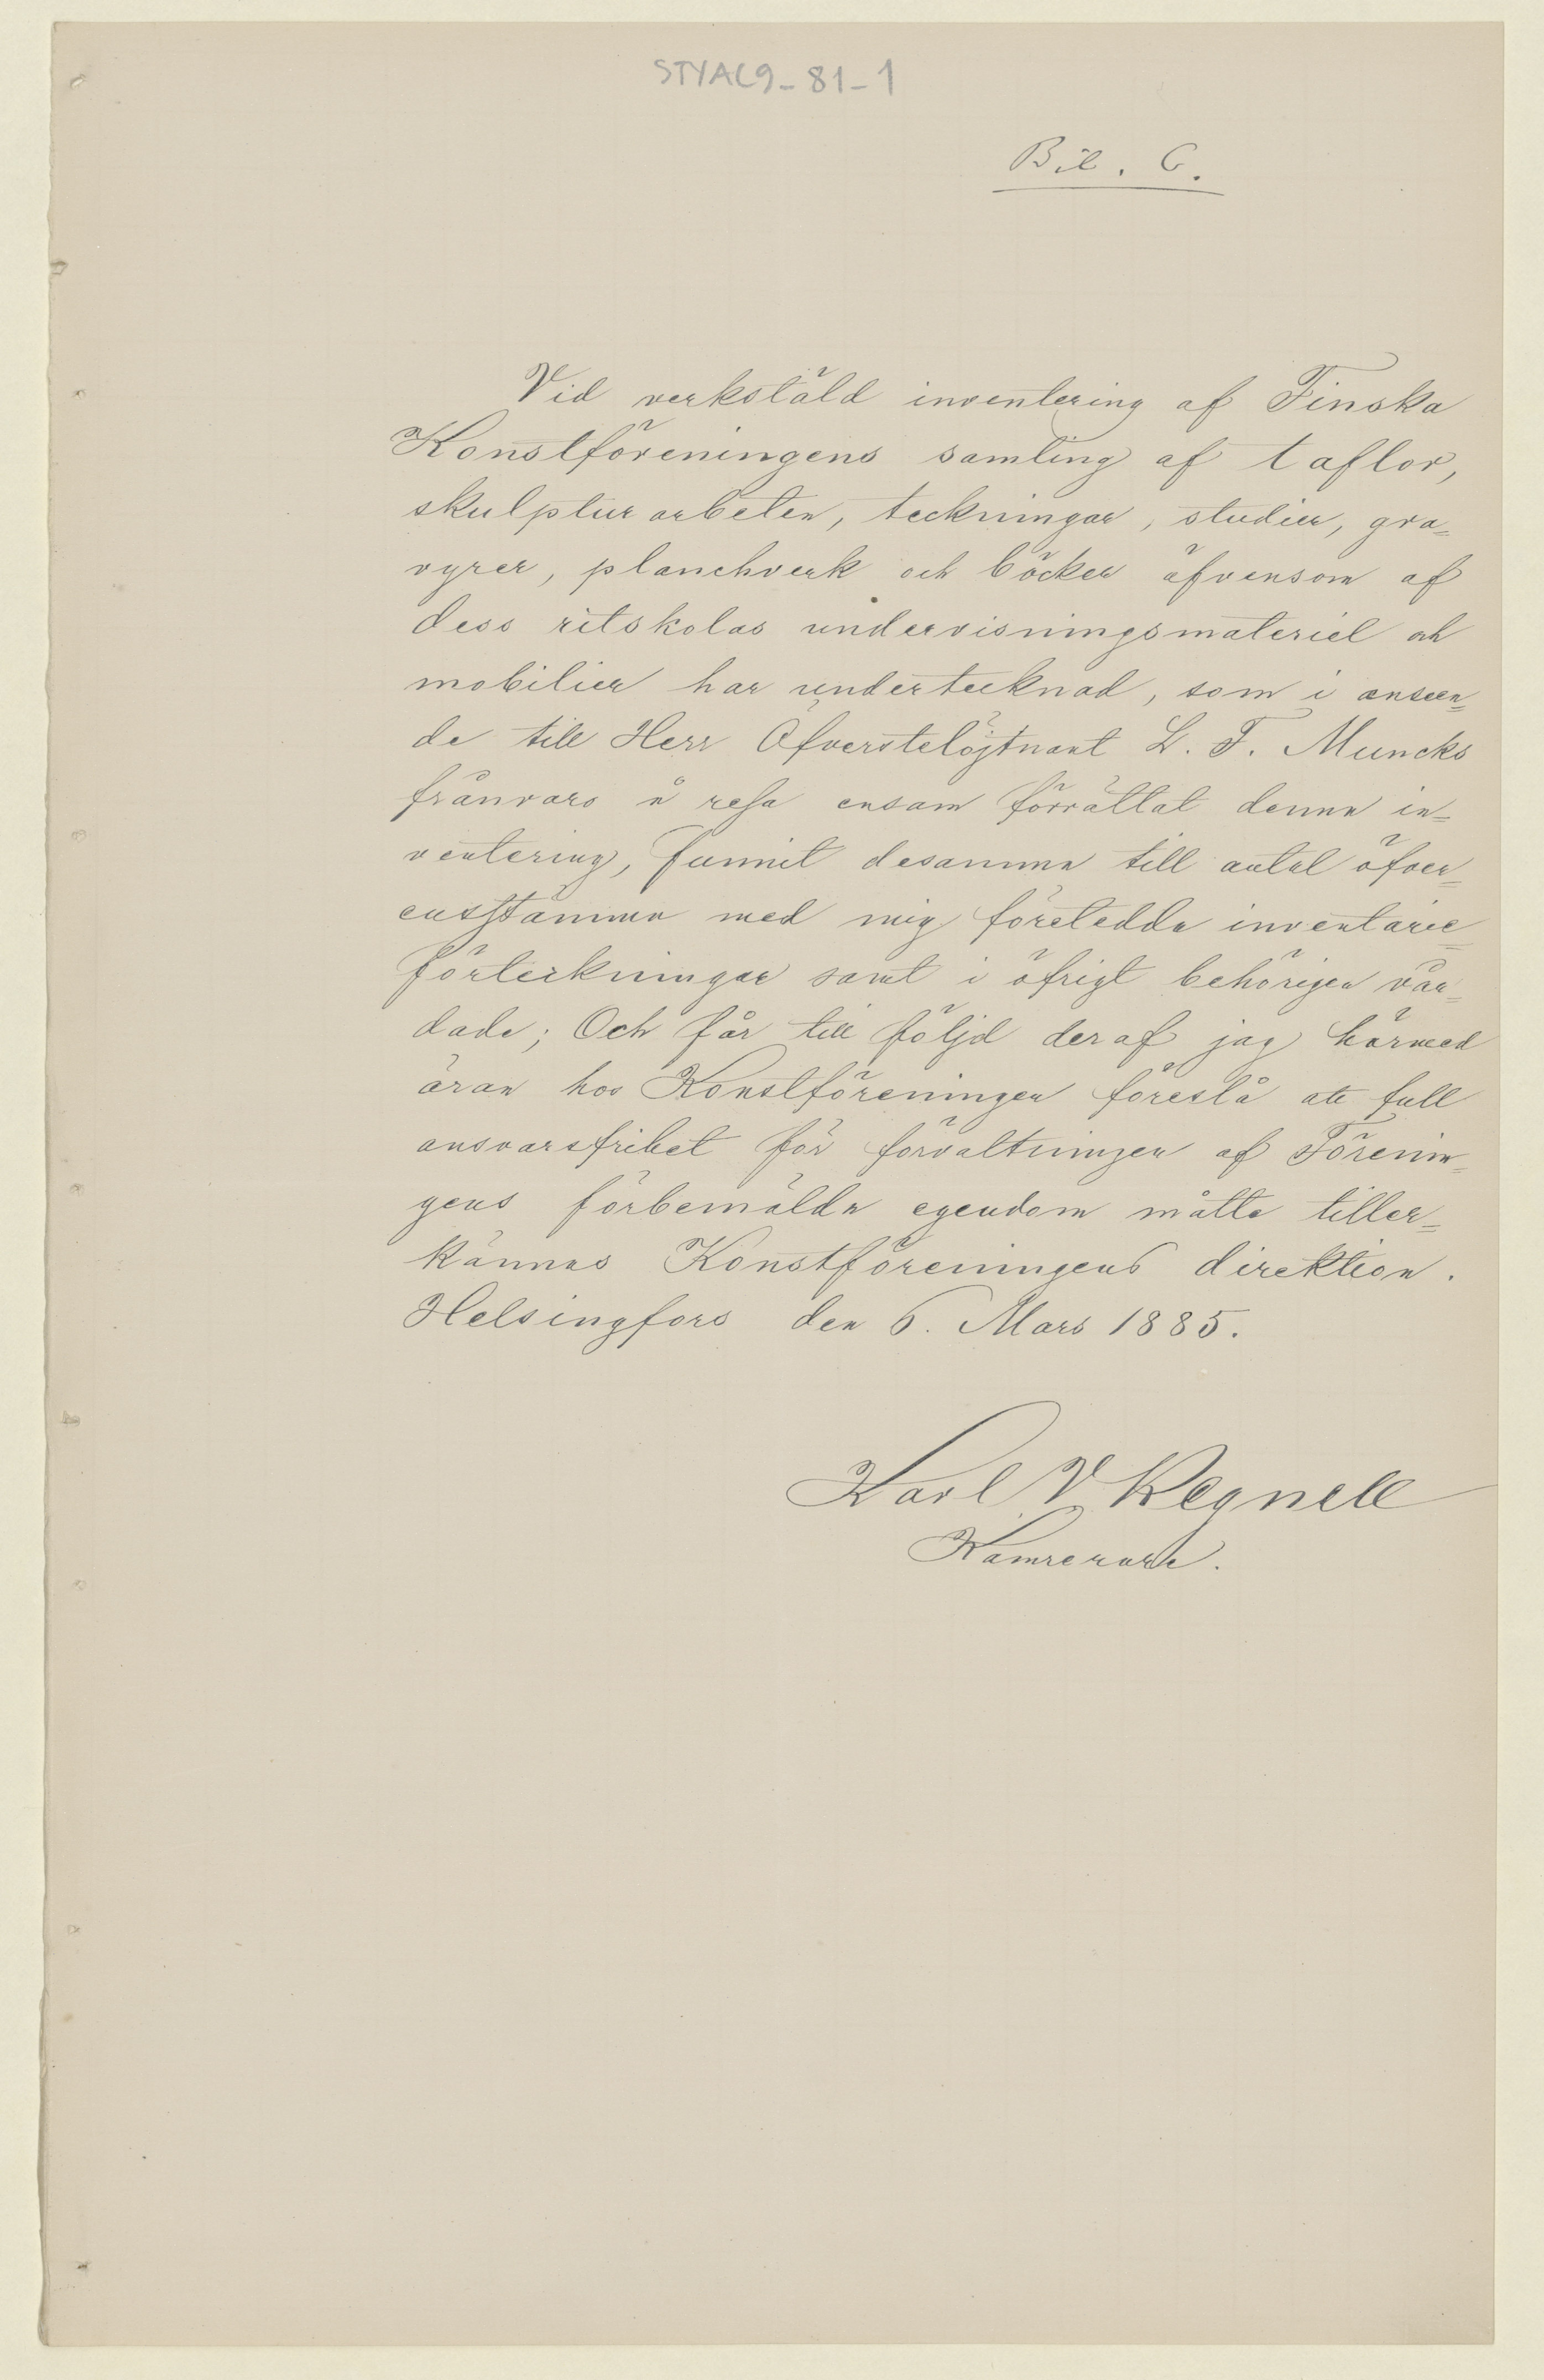 STYAC9-81-1
Bil. C.
Vid verkstäld inventering af Finska
Konstföreningens samling af taflor,
skulpturarbeten, teckningar, studier, gra=
vyrer, planchverk och böcker äfvensom af
dess ritskolas undervisningsmateriel och
mobilier har undertecknad, som i anseen=
de till Herr Öfverstelöjtnant L. F. Muncks
frånvaro å resa ensam förrättat denna in=
ventering, funnit desamma till antal öfver=
ensstämma med mig företedda inventarie=
förteckningar samt i öfrigt behörigen vår=
dade; Och får till följd deraf jag härmed
äran hos Konstföreningen föreslå att full
ansvarsfrihet för förvaltningen af Förenin=
gens förbemälda egendom måtte tiller=
kännas Konstföreningens direktion.
Helsingfors den 6. Mars 1885.
Karl V Regnell
Kamrerare.